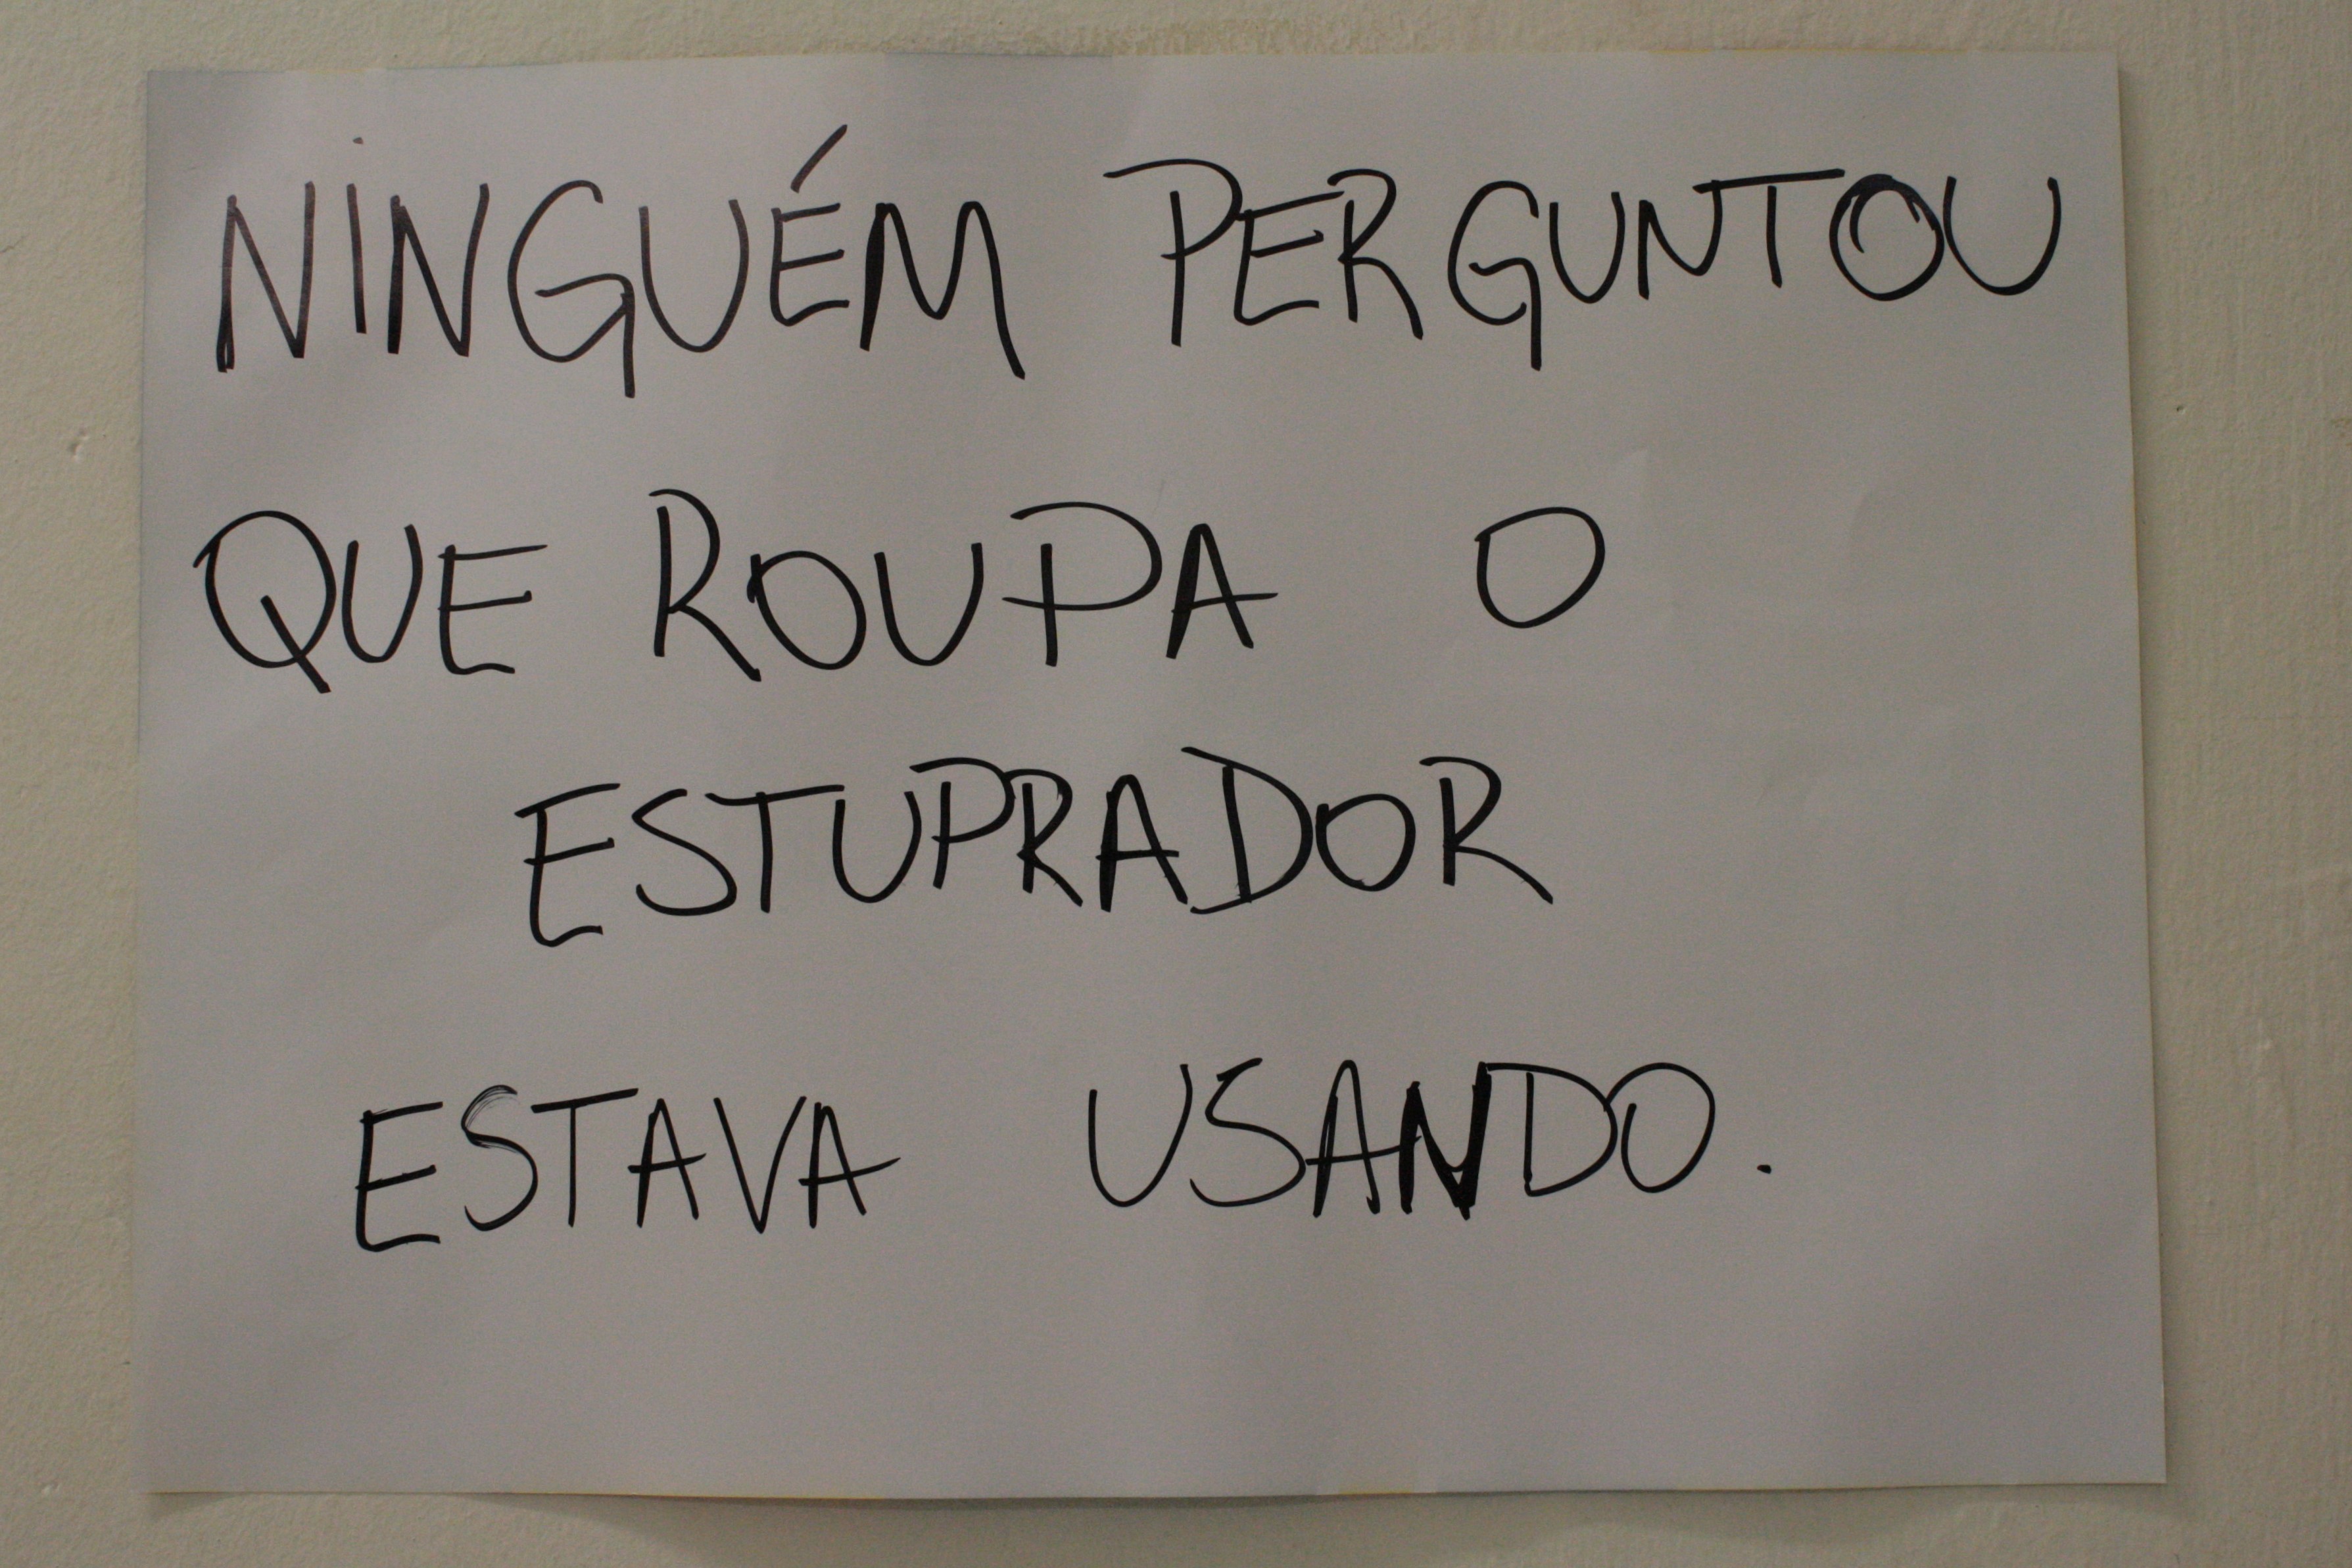 NINGUÉM PERGUNTOU
QUE ROUPA O
ESTUPRADOR
ESTAVA USANDO.